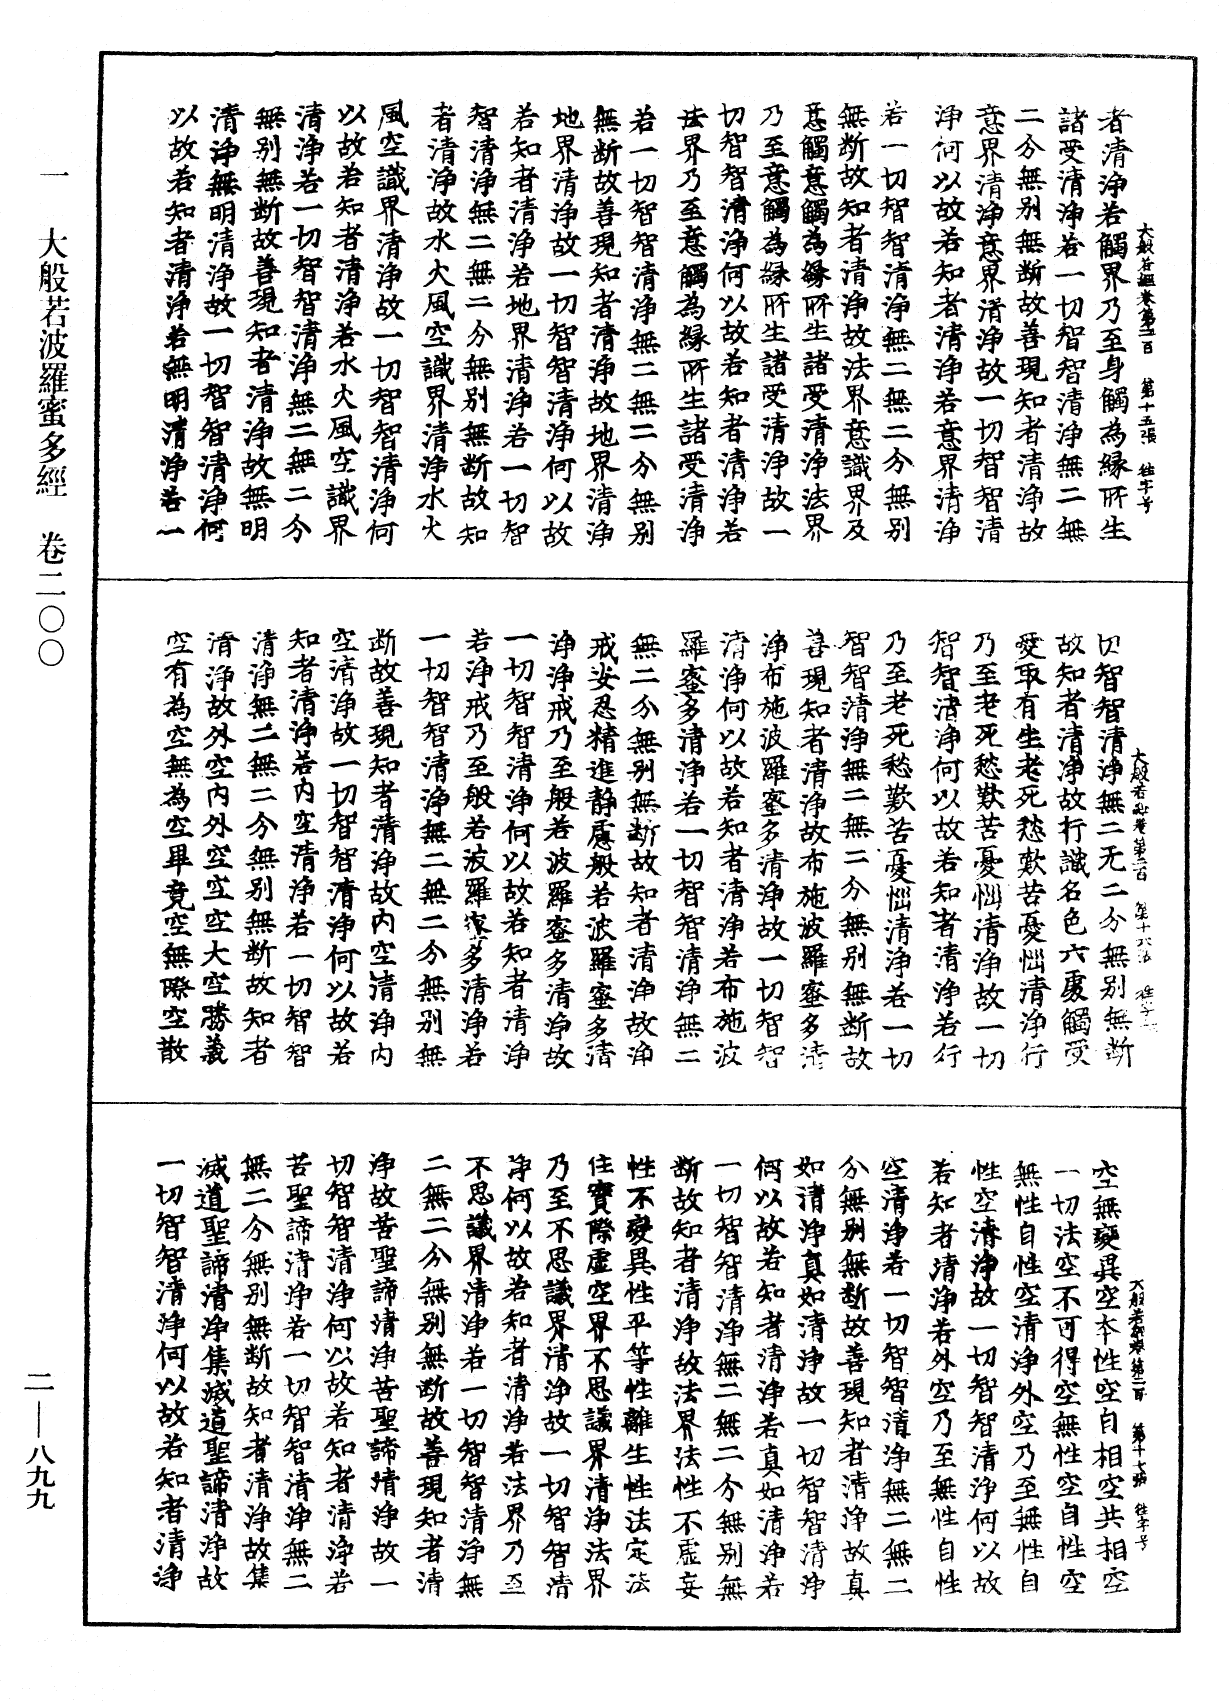 者清淨若觸界乃至身觸為緣所生
諸受清淨若一切智智清淨無二無
二分無別無斷故善現知者清淨故
意界清淨意界清淨故一切智智清
淨何以故若知者清淨若意界清淨
若一切智智清淨無二無二分無別
無斷故知者清淨故法界意識界及
意觸意觸為緣所生諸受清淨法界
乃至意觸為緣所生諸受清淨故一
切智智清淨何以故若知者清淨若
法界乃至意觸為緣所生諸受清淨
若一切智智清淨無二無二分無別
無斷故善現知者清淨故地界清淨
地界清淨故一切智智清淨何以故
若知者清淨若地界清淨若一切智
智清淨無二無二分無別無斷故知
者清淨故水火風空識界清淨水火
風空識界清淨故一切智智清淨何
以故若知者清淨若水火風空識界
清淨若一切智智清淨無二無二分
無別無斷故善現知者清淨故無明
清淨無明清淨故一切智智清淨何
以故若知者清淨若無明清淨若一
大般若經卷第二百　第十五張　往字号
切智智清淨無二无二分無別無斷
故知者清淨故行識名色六處觸受
愛取有生老死愁歎苦憂惱清淨行
乃至老死愁歎苦憂惱清淨故一切
智智清淨何以故若知者清淨若行
乃至老死愁歎苦憂惱清淨若一切
智智清淨無二無二分無別無斷故
善現知者清淨故布施波羅蜜多清
淨布施波羅蜜多清淨故一切智智
清淨何以故若知者清淨若布施波
羅蜜多清淨若一切智智清淨無二
無二分無別無斷故知者清淨故淨
戒安忍精進靜慮般若波羅蜜多清
淨淨戒乃至般若波羅蜜多清淨故
一切智智清淨何以故若知者清淨
若淨戒乃至般若波羅蜜多清淨若
一切智智清淨無二無二分無別無
斷故善現知者清淨故內空清淨內
空清淨故一切智智清淨何以故若
知者清淨若內空清淨若一切智智
清淨無二無二分無別無斷故知者
清淨故外空內外空空空大空勝義
空有為空無為空畢竟空無際空散
大般若經卷第二百　第十六張
空無變異空本性空自相空共相空
一切法空不可得空無性空自性空
無性自性空清淨外空乃至無性自
性空清淨故一切智智清淨何以故
若知者清淨若外空乃至無性自性
空清淨若一切智智清淨無二無二
分無別無斷故善現知者清淨故真
如清淨真如清淨故一切智智清淨
何以故若知者清淨若真如清淨若
一切智智清淨無二無二分無別無
斷故知者清淨故法界法性不虛妄
性不變異性平等性離生性法定法
住實際虛空界不思議界清淨法界
乃至不思議界清淨故一切智智清
淨何以故若知者清淨若法界乃至
不思議界清淨若一切智智清淨無
二無二分無別無斷故善現知者清
淨故苦聖諦清淨苦聖諦清淨故一
切智智清淨何以故若知者清淨若
苦聖諦清淨若一切智智清淨無二
無二分無別無斷故知者清淨故集
滅道聖諦清淨集滅道聖諦清淨故
一切智智清淨何以故若知者清淨
大般若經卷第二百　第十七張　往字号
一　大般若波羅蜜多經　卷二〇〇
二—八九九